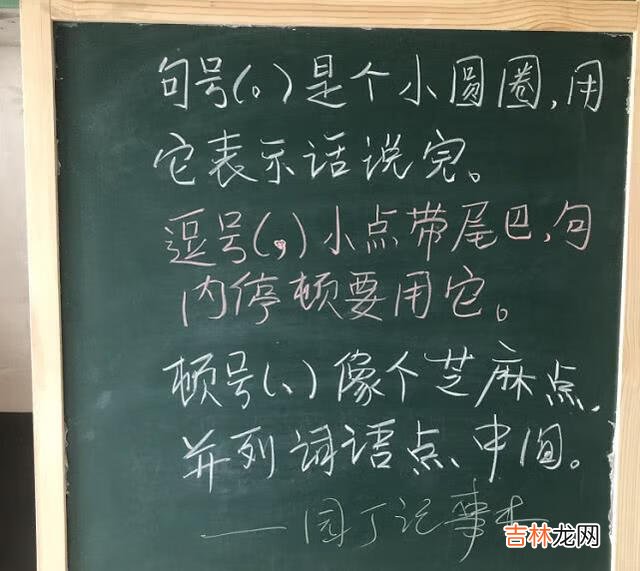 句号(。)是个小圆圈,用
它表示话说完。
逗号(,)小点带尾巴,句
内停顿要用它。
顿号(、)像个芝麻点,
并列词语点、中间。
——园丁记事本
吉林龙网